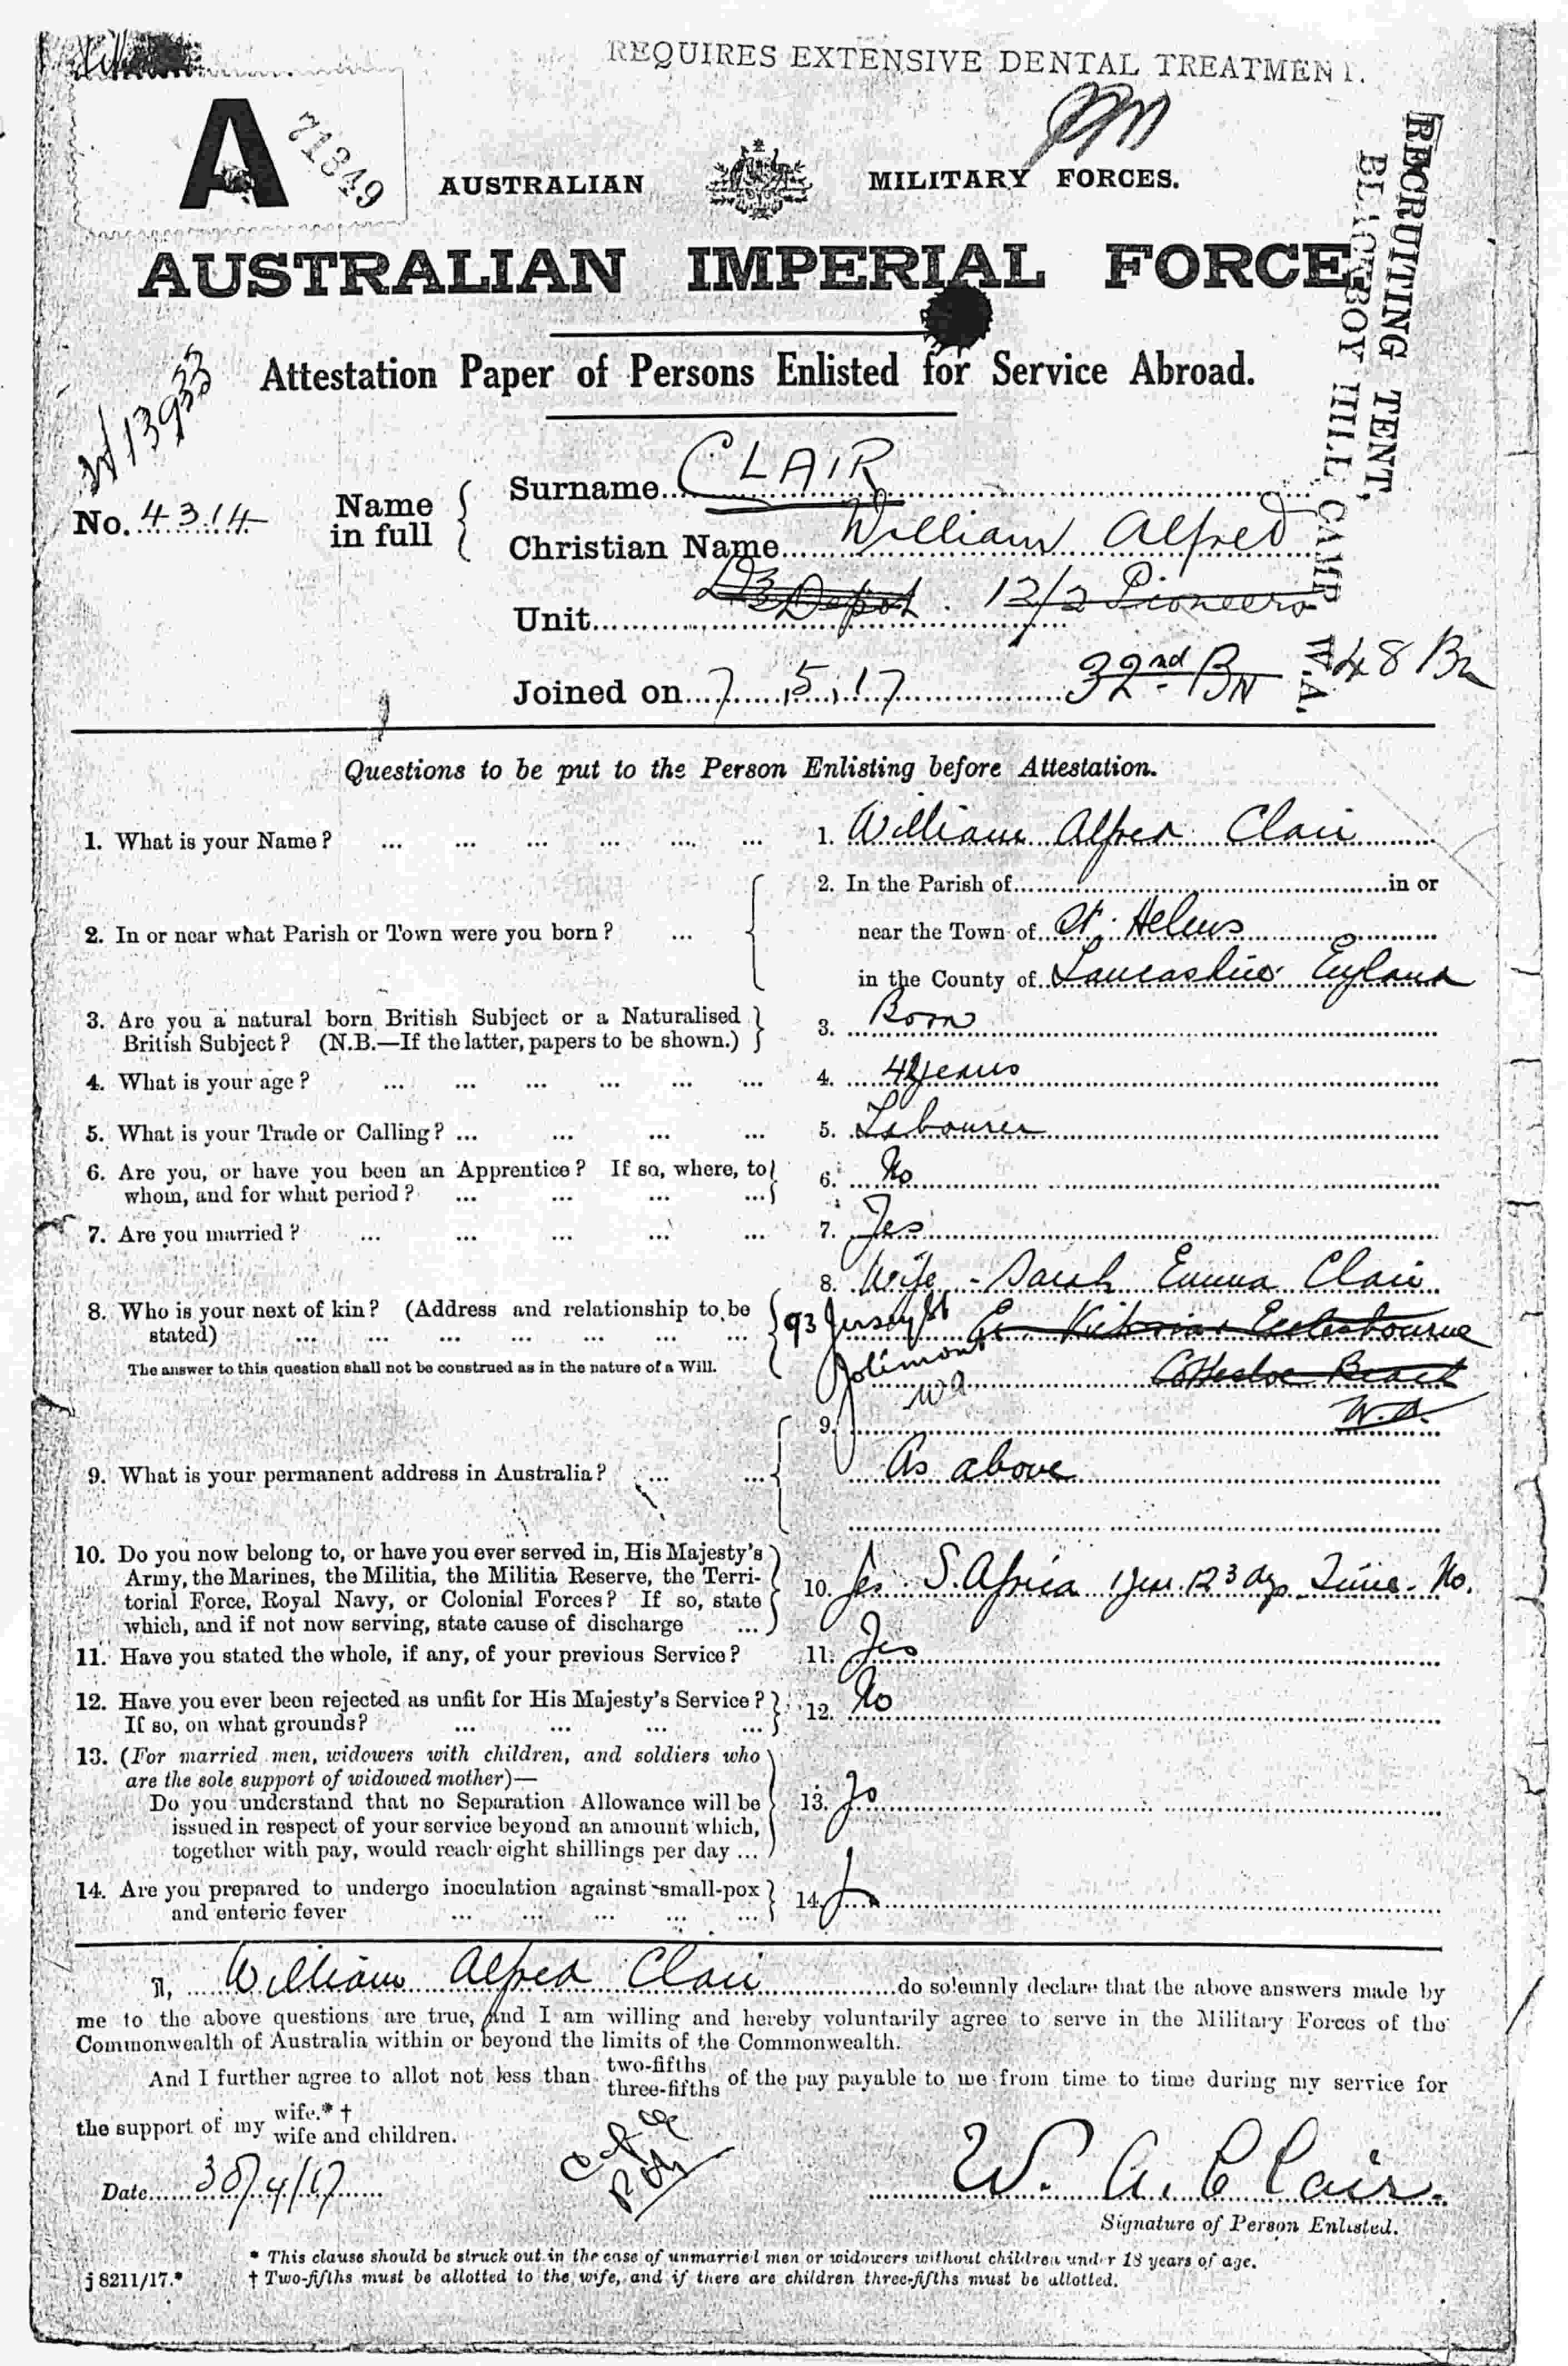 REQUIRES EXTENSIVE DENTAL TREATMENT.
A
71349
AUSTRALIAN MILITARY FORCES.
RECRUITING TENT,
BLACKBOY HILL CAMP
W.A.
AUSTRALIAN IMPERIAL FORCE
Attestation Paper of Persons Enlisted for Service Abroad.
W 13933
No. 4314
Name in full
Surname CLAIR
Christian Name William Alfred
Unit D3 Depot. 12/2 Pioneers
Joined on 7.5.17 32nd BN 48 Bn
Questions to be put to the Person Enlisting before Attestation.
1. What is your Name? ... ... ... ... ... ... 1. William Alfred Clair
2. In or near what Parish or Town were you born? ...
2. In the Parish of in or
near the Town of St. Helens
in the County of Lancashire England
3. Are you a natural born British Subject or a Naturalised
British Subject? (N.B.—If the latter, papers to be shown.) 3. Born
4. What is your age? ... ... ... ... ... ... 4. 42 years
5. What is your Trade or Calling? ... ... ... ... 5. Labourer
6. Are you, or have you been an Apprentice? If so, where, to
whom, and for what period? ... ... ... ... 6. No
7. Are you married? ... ... ... ... ... 7. Yes
8. Who is your next of kin? (Address and relationship to be
stated) ... ... ... ... ... ... ...
The answer to this question shall not be construed as in the nature of a Will.
8. Wife - Sarah Emma Clair
93 Jersey St Victoria Ecclesbourne
Jolimont Cottesloe Beach
WA W.A.
9. What is your permanent address in Australia? ... ... 9.
As above
10. Do you now belong to, or have you ever served in, His Majesty's
Army, the Marines, the Militia, the Militia Reserve, the Terri-
torial Force, Royal Navy, or Colonial Forces? If so, state
which, and if not now serving, state cause of discharge ...
10. Yes. S. Africa 1 year 123 dys Time. No.
11. Have you stated the whole, if any, of your previous Service? 11. Yes
12. Have you ever been rejected as unfit for His Majesty's Service?
If so, on what grounds? ... ... ... ... 12. No
13. (For married men, widowers with children, and soldiers who
are the sole support of widowed mother)—
Do you understand that no Separation Allowance will be
issued in respect of your service beyond an amount which,
together with pay, would reach eight shillings per day ...
13.
14. Are you prepared to undergo inoculation against small-pox
and enteric fever ... ... ... ... ... 14.
I, William Alfred Clair do solemnly declare that the above answers made by
me to the above questions are true, and I am willing and hereby voluntarily agree to serve in the Military Forces of the
Commonwealth of Australia within or beyond the limits of the Commonwealth.
And I further agree to allot not less than two-fifths three-fifths of the pay payable to me from time to time during my service for
the support of my wife.* † wife and children.
Date 30/4/17
W. A. Clair.
Signature of Person Enlisted.
* This clause should be struck out in the case of unmarried men or widowers without children under 18 years of age.
j 8211/17.* † Two-fifths must be allotted to the wife, and if there are children three-fifths must be allotted.